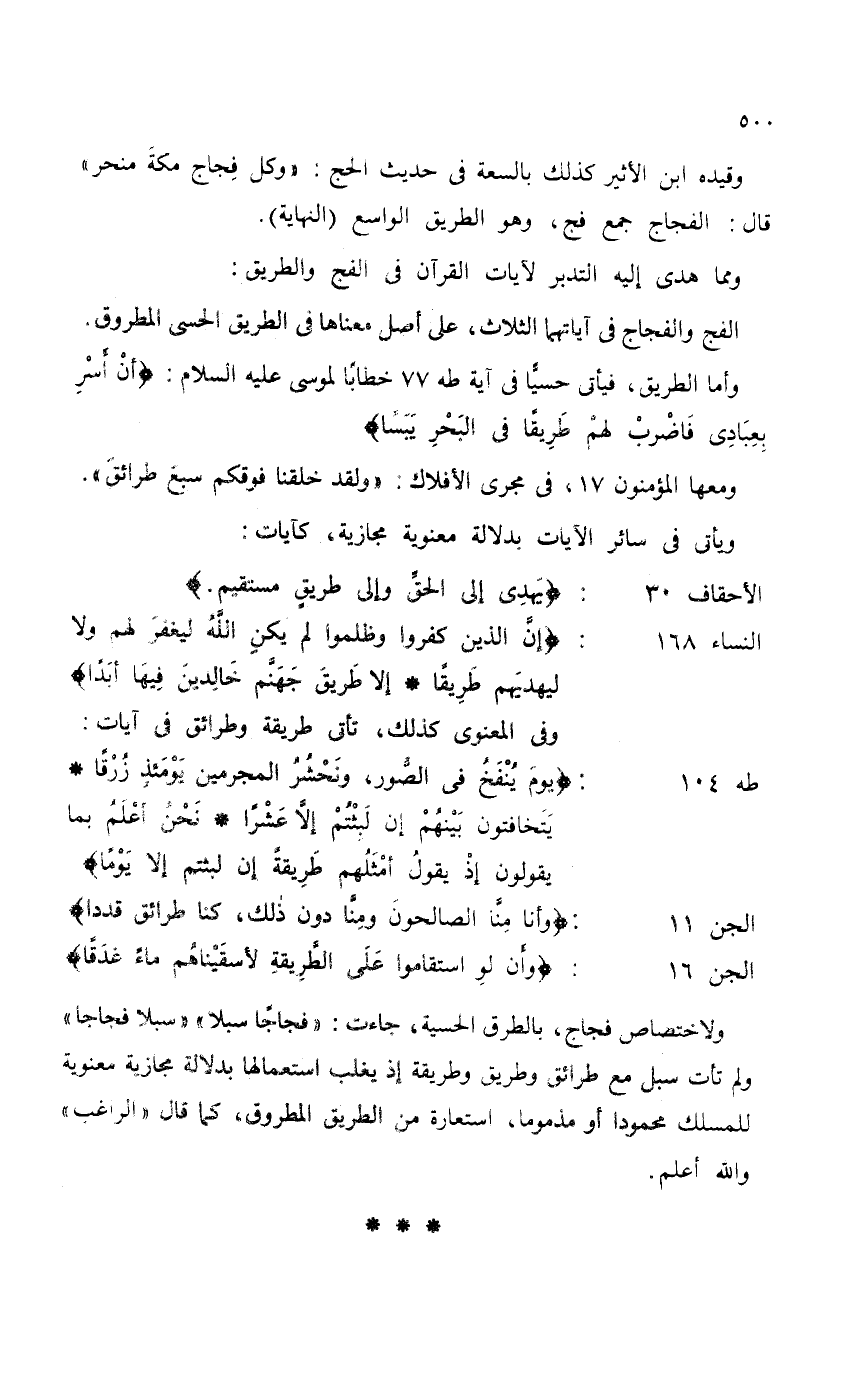 ٥٠٠
وقيده ابن الأثير كذلك بالسعة فى حديث الحج : «وكل فِجاج مكةَ منحر»
قال : الفجاج جمع فج، وهو الطريق الواسع (النهاية).
ومما هدى إليه التدبر لآيات القرآن فى الفج والطريق :
الفج والفجاج فى آياتهما الثلاث، على أصل معناها فى الطريق الحسى المطروق.
وأما الطريق، فيأتى حسيًّا فى آية طه ٧٧ خطابًا لموسى عليه السلام : ﴿أنْ أَسْرِ
بِعِبَادِى فَاضْرِبْ لهمْ طَرِيقًا فى البَحْرِ يَبَسًا﴾
ومعها المؤمنون ١٧، فى مجرى الأفلاك : «ولقد خلقنا فوقكم سبعَ طرائقَ».
ويأتى فى سائر الآيات بدلالة معنوية مجازية، كآيات :
الأحقاف ٣٠ : ﴿يَهدِى إلى الحقِّ وإلى طريقٍ مستقيم.﴾
النساء ١٦٨ : ﴿إنَّ الذين كفروا وظلموا لم يكنِ اللَّهُ ليغفرَ لهم ولا
ليهديَهم طَرِيقًا * إلا طَريقَ جَهَنَّم خَالِدينَ فِيهَا أبَدًا﴾
وفى المعنوى كذلك، تأتى طريقة وطرائق فى آيات :
طه ١٠٤ : ﴿يومَ يُنْفَخُ فى الصُّور، ونَحْشُرُ المجرمين يَوْمَئذٍ زُرْقًا *
يَتَخافتون بَيْنهُمْ إن لَبِثْتُمْ إلاَّ عَشْرًا * نَحْنُ أعْلَمُ بما
يقولون إذْ يقولُ أمْثَلُهم طَرِيقةً إن لبثتم إلا يَوْمًا﴾
الجن ١١ : ﴿وأنا مِنَّا الصالحونَ ومِنَّا دون ذٰلك، كنا طرائق قددا﴾
الجن ١٦ : ﴿وأن لوِ استقاموا عَلَى الطَّرِيقةِ لأسقَيْناهُم ماءً غدَقًا﴾
ولاختصاص فجاج، بالطرق الحسية، جاءت : «فجاجًا سبلا» «سبلا فجاجا»
ولم تأت سبل مع طرائق وطريق وطريقة إذ يغلب استعمالها بدلالة مجازية معنوية
للمسلك محمودا أو مذموما، استعارة من الطريق المطروق، كما قال «الراغب»
والله أعلم.
* * *